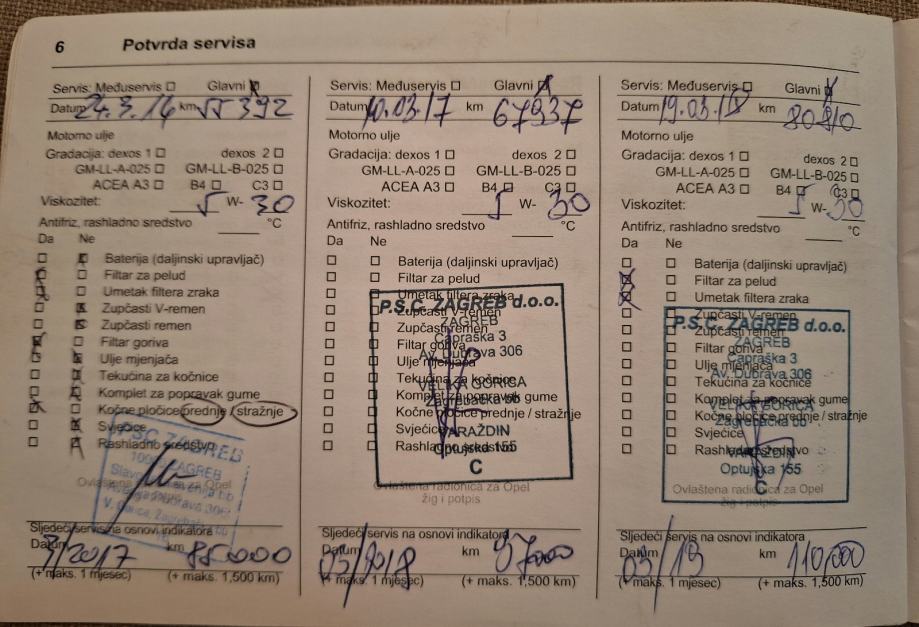 6 Potvrda servisa
Servis: Međuservis Glavni
Datum 24.3.16 km 55 392
Motorno ulje
Gradacija: dexos 1 dexos 2
GM-LL-A-025 GM-LL-B-025
ACEA A3 B4 C3
Viskozitet: 5 W- 30
Antifriz, rashladno sredstvo °C
Da Ne
Baterija (daljinski upravljač)
Filtar za pelud
Umetak filtera zraka
Zupčasti V-remen
Zupčasti remen
Filtar goriva
Ulje mjenjača
Tekućina za kočnice
Komplet za popravak gume
Kočne pločice prednje / stražnje
Svjećice
Rashladno sredstvo
P.S.C. ZAGREB
ZAGREB
Ovlaštena radionica za Opel
Sljedeći servis na osnovi indikatora
Datum 3/2017 km 85000
(+ maks. 1 mjesec) (+ maks. 1,500 km)
Servis: Međuservis Glavni
Datum 10.03.17 km 67937
Motorno ulje
Gradacija: dexos 1 dexos 2
GM-LL-A-025 GM-LL-B-025
ACEA A3 B4 C3
Viskozitet: 5 W- 30
Antifriz, rashladno sredstvo °C
Da Ne
Baterija (daljinski upravljač)
Filtar za pelud
Umetak filtera zraka
Zupčasti V-remen
Zupčasti remen
Filtar goriva
Ulje mjenjača
Tekućina za kočnice
Komplet za popravak gume
Kočne pločice prednje / stražnje
Svjećice
Rashladno sredstvo
P.S.C. ZAGREB d.o.o.
ZAGREB
Capraška 3
Av. Dubrava 306
VELIKA GORICA
Zagrebačka bb
VARAŽDIN
Optujska 155
C
Ovlaštena radionica za Opel
žig i potpis
Sljedeći servis na osnovi indikatora
Datum 03/2018 km 97000
(+ maks. 1 mjesec) (+ maks. 1,500 km)
Servis: Međuservis Glavni
Datum 19.03.18 km 80810
Motorno ulje
Gradacija: dexos 1 dexos 2
GM-LL-A-025 GM-LL-B-025
ACEA A3 B4 C3
Viskozitet: 5 W- 30
Antifriz, rashladno sredstvo °C
Da Ne
Baterija (daljinski upravljač)
Filtar za pelud
Umetak filtera zraka
Zupčasti V-remen
Zupčasti remen
Filtar goriva
Ulje mjenjača
Tekućina za kočnice
Komplet za popravak gume
Kočne pločice prednje / stražnje
Svjećice
Rashladno sredstvo
P.S.C. ZAGREB d.o.o.
ZAGREB
Capraška 3
Av. Dubrava 306
VELIKA GORICA
Zagrebačka bb
VARAŽDIN
Optujska 155
C
Ovlaštena radionica za Opel
žig i potpis
Sljedeći servis na osnovi indikatora
Datum 03/19 km 110,000
(+ maks. 1 mjesec) (+ maks. 1,500 km)